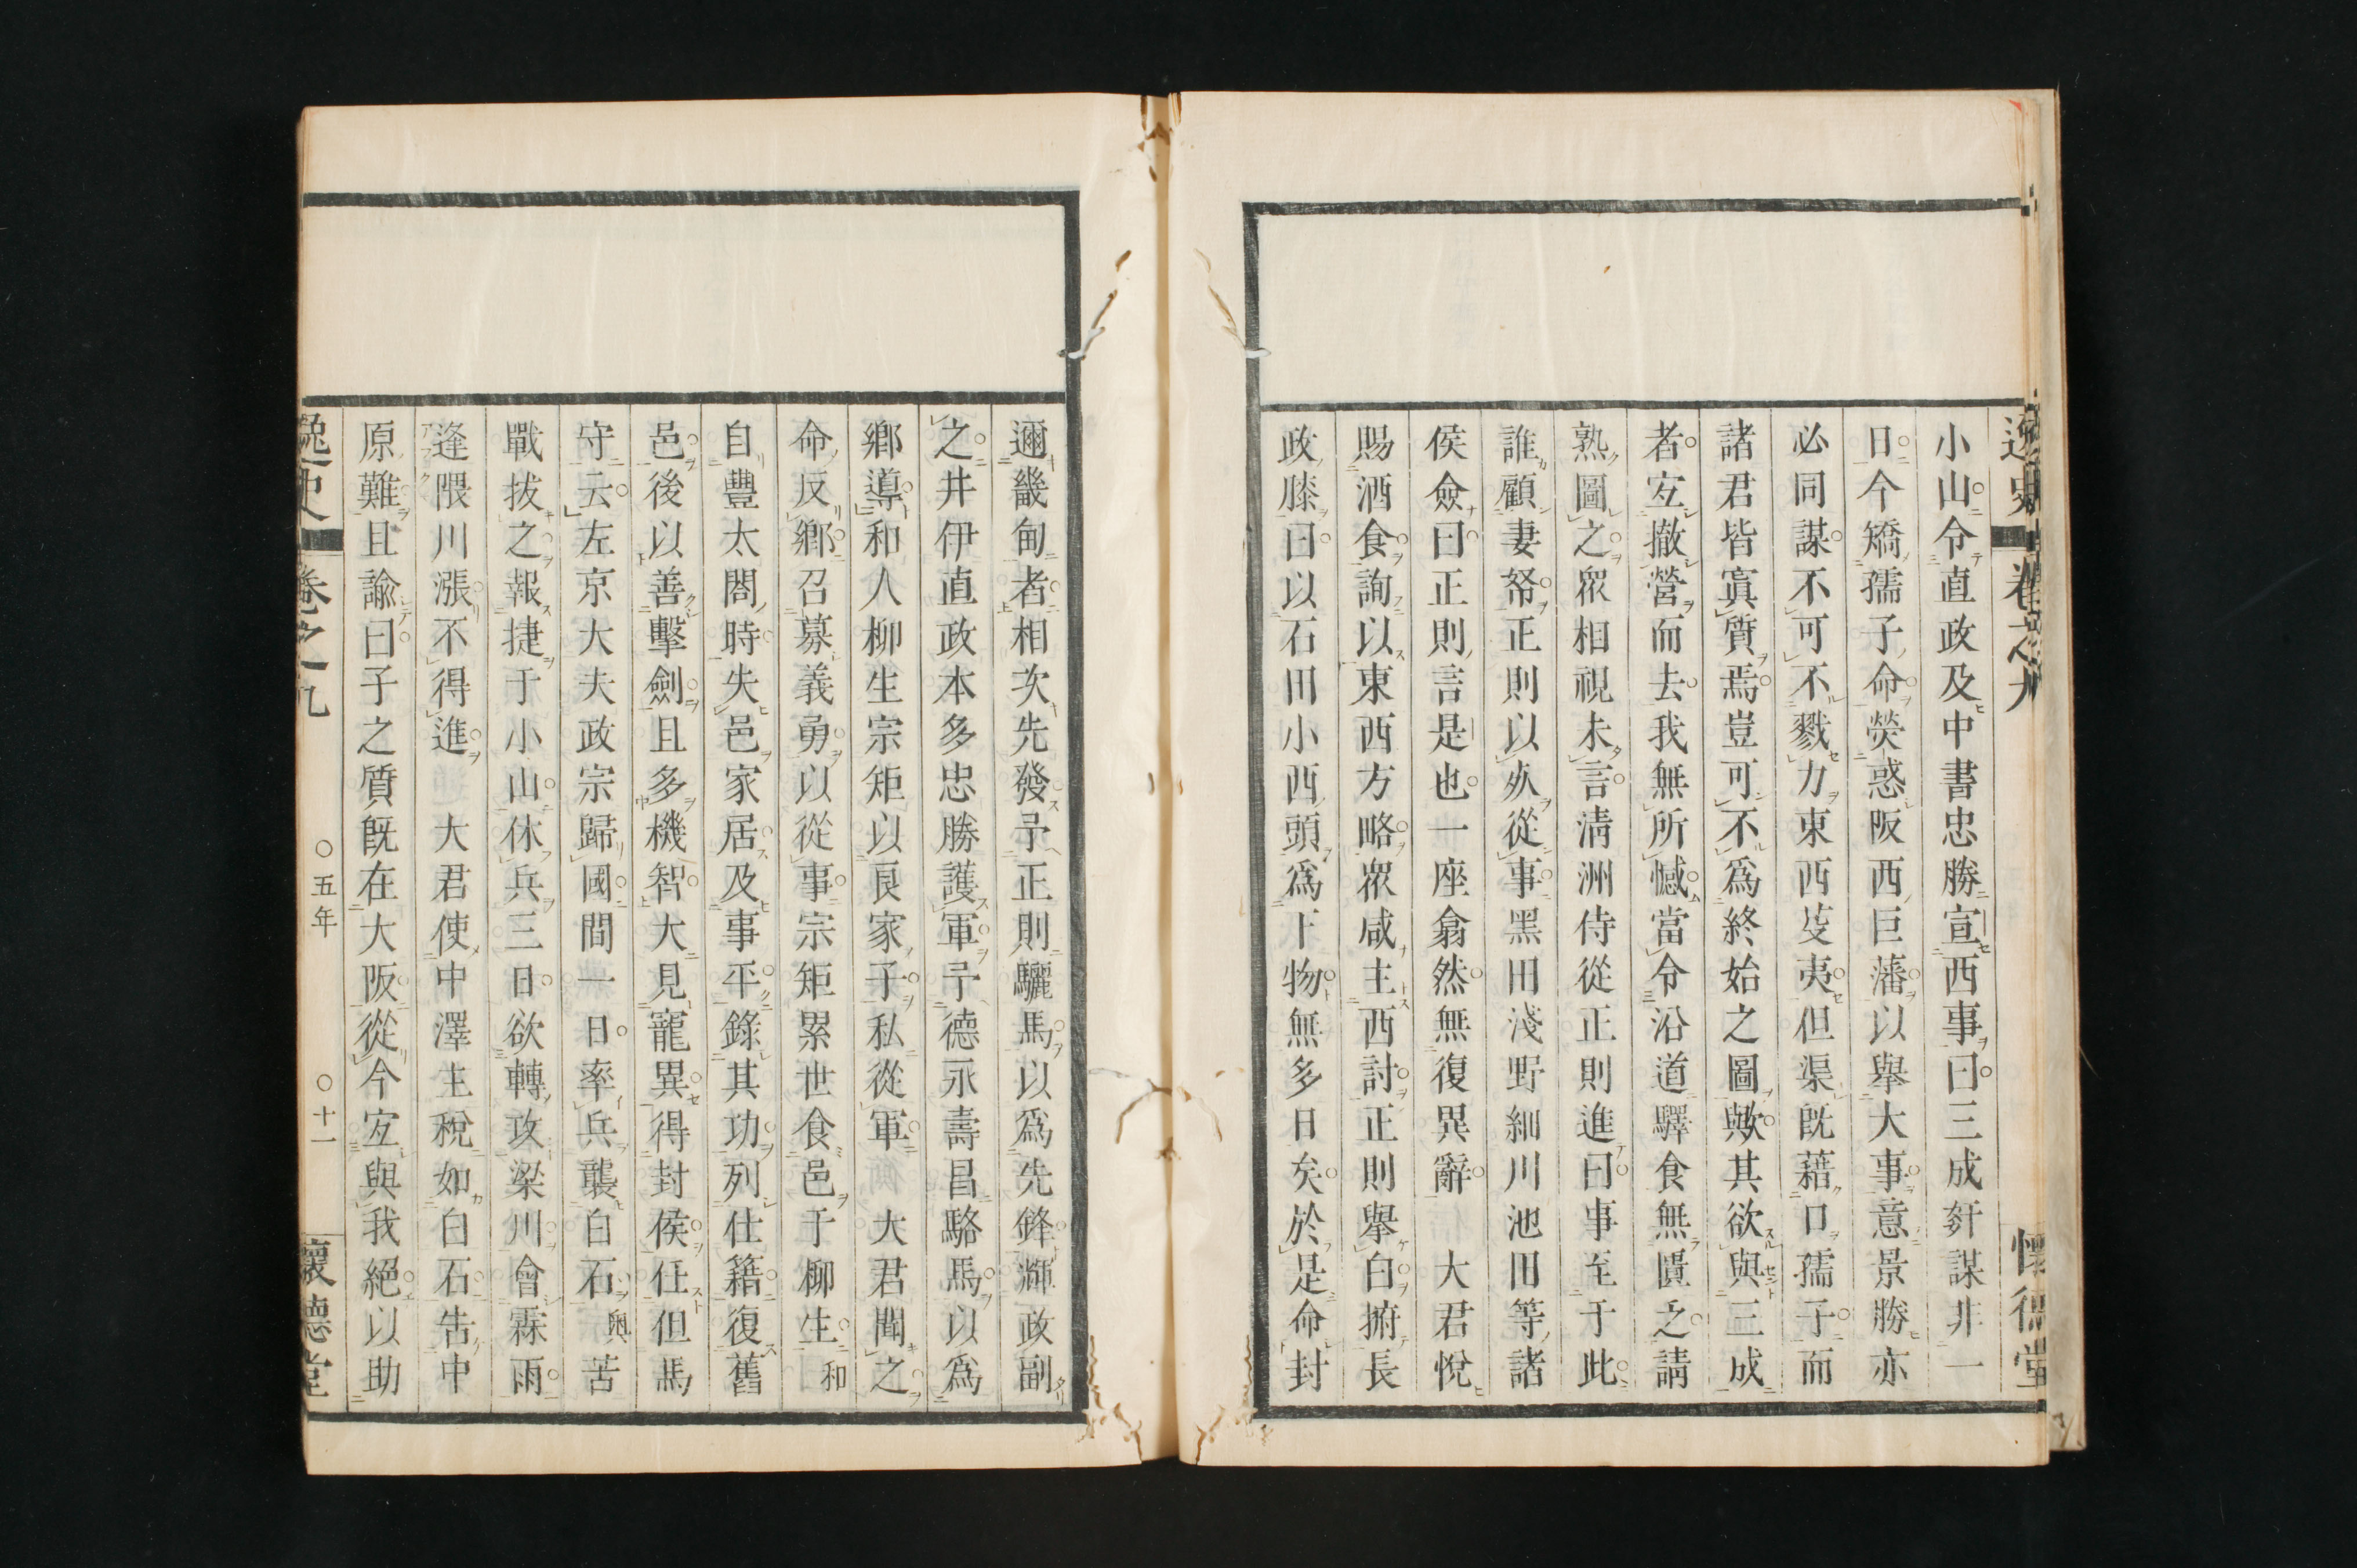 逸史 卷之九 懷德堂
小山令直政及中書忠勝宣西事曰三成姧謀非一
日今矯孺子命熒惑阪西巨藩以擧大事意景勝亦
必同謀不可不戮力東西芟夷但渠旣藉口孺子而
諸君皆寘質焉豈可不爲終始之圖歟其欲與三成
者宐撤營而去我無所憾當令沿道驛食無匱乏請
熟圖之衆相視未言淸洲侍從正則進曰事至于此
誰顧妻帑正則以死從事黑田淺野細川池田等諸
侯僉曰正則言是也一座翕然無復異辭 大君悅
賜酒食詢以東西方略衆咸主西討正則擧白捬長
政膝曰以石田小西頭爲下物無多日矣於是命封
邇畿甸者相次先發予正則驪馬以爲先鋒輝政副
之井伊直政本多忠勝護軍予德永壽昌駱馬以爲
鄕導和人柳生宗矩以良家子私從軍 大君聞之
命反鄕召募義勇以從事宗矩累世食邑于柳生和
自豐太閤時失邑家居及事平錄其功列仕籍復舊
邑後以善擊劍且多機智大見寵異得封侯仕但馬
守云左京大夫政宗歸國間一日率兵襲白石奧苦
戰拔之報捷于小山休兵三日欲轉攻梁川會霖雨
逢隈川漲不得進 大君使中澤主稅如白石告中
原難且諭曰子之質旣在大阪從今宐與我絕以助
逸史 卷之九 〇五年 〇十一 懷德堂